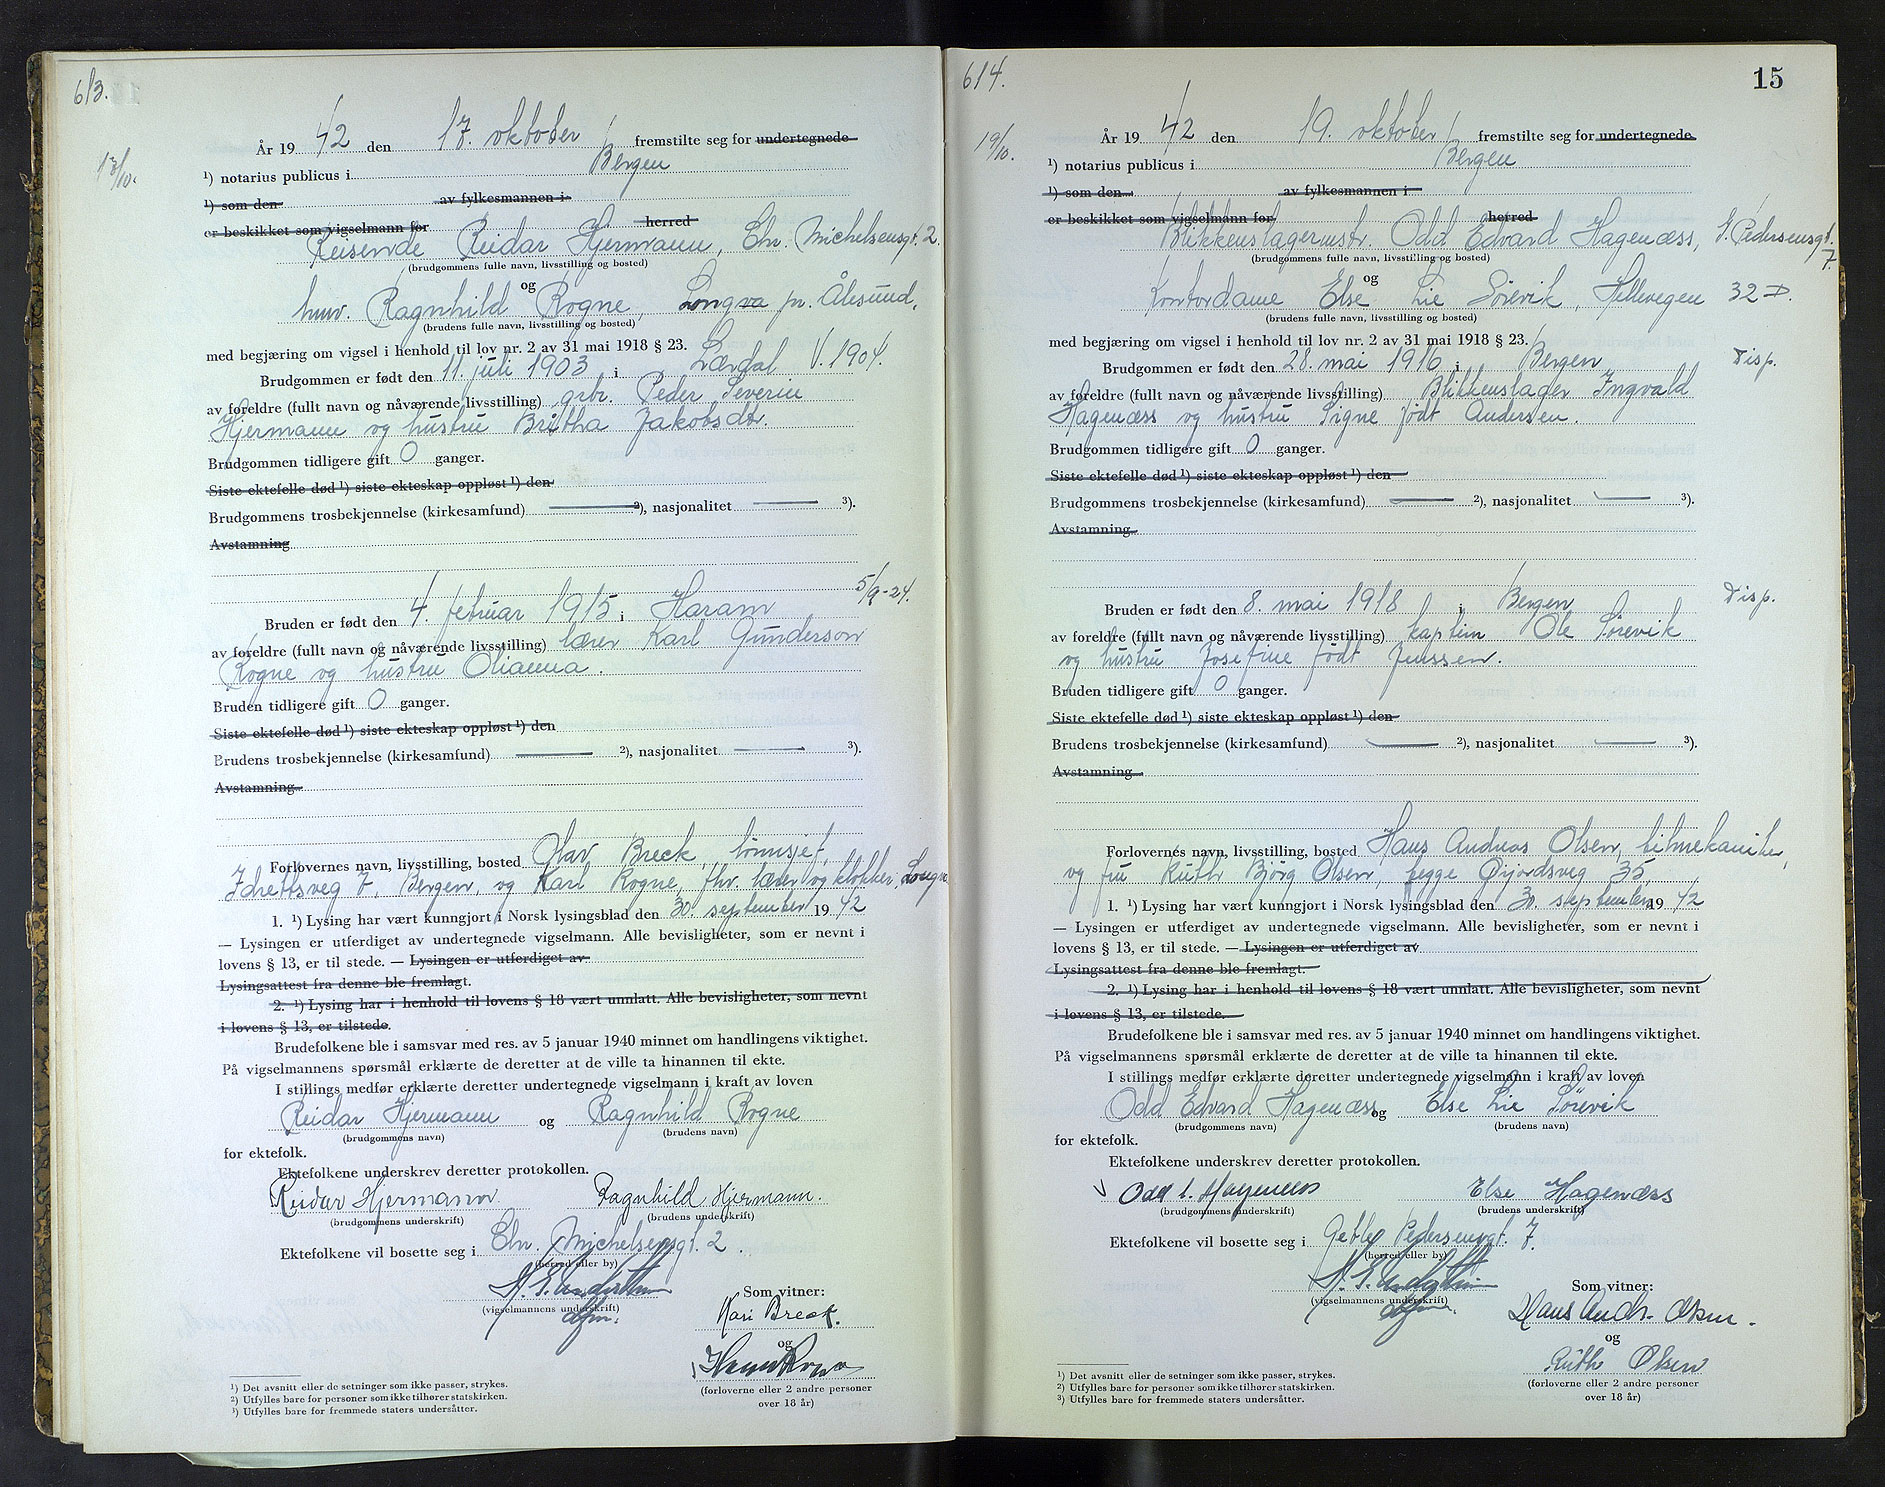 613.
År 19 42 den 17. oktober fremstilte seg for undertegnede
17/10.
¹) notarius publicus i Bergen
¹) som den av fylkesmannen i
er beskikket som vigselmann for herred
Reisende Reidar Hjermann, Chr. Michelsensgt. 2.
(brudgommens fulle navn, livsstilling og bosted)
og
husv. Ragnhild Rogne, Longva pr. Ålesund.
(brudens fulle navn, livsstilling og bosted)
med begjæring om vigsel i henhold til lov nr. 2 av 31 mai 1918 § 23.
Brudgommen er født den 11. juli 1903 i Lærdal V. 1904.
av foreldre (fullt navn og nåværende livsstilling) grbr. Peder Severin
Hjermann og hustru Britha Jakobsdtr.
Brudgommen tidligere gift 0 ganger.
Siste ektefelle død ¹) siste ekteskap oppløst ¹) den
Brudgommens trosbekjennelse (kirkesamfund) ²), nasjonalitet ³).
Avstamning
Bruden er født den 4. februar 1915 i Haram 5/9-24.
av foreldre (fullt navn og nåværende livsstilling) lærer Karl Gunderson
Rogne og hustru Olianna.
Bruden tidligere gift 0 ganger.
Siste ektefelle død ¹) siste ekteskap oppløst ¹) den
Brudens trosbekjennelse (kirkesamfund) ²), nasjonalitet ³).
Avstamning
Forlovernes navn, livsstilling, bosted Olav Breck, lønnsjef,
Idrettsveg 7, Bergen, og Karl Rogne, fhv. lærer og klokker, Longva
1. ¹) Lysing har vært kunngjort i Norsk lysingsblad den 30. september 19 42
— Lysingen er utferdiget av undertegnede vigselmann. Alle bevisligheter, som er nevnt i
lovens § 13, er til stede. — Lysingen er utferdiget av
Lysingsattest fra denne ble fremlagt.
2. ¹) Lysing har i henhold til lovens § 18 vært unnlatt. Alle bevisligheter, som nevnt
i lovens § 13, er tilstede.
Brudefolkene ble i samsvar med res. av 5 januar 1940 minnet om handlingens viktighet.
På vigselmannens spørsmål erklærte de deretter at de ville ta hinannen til ekte.
I stillings medfør erklærte deretter undertegnede vigselmann i kraft av loven
Reidar Hjermann og Ragnhild Rogne
(brudgommens navn) (brudens navn)
for ektefolk.
Ektefolkene underskrev deretter protokollen.
Reidar Hjermann Ragnhild Hjermann.
(brudgommens underskrift) (brudens underskrift)
Ektefolkene vil bosette seg i Chr. Michelsensgt. 2.
(herred eller by)
(vigselmannens underskrift)
Som vitner:
Kari Breck.
og
(forloverne eller 2 andre personer
over 18 år)
¹) Det avsnitt eller de setninger som ikke passer, strykes.
²) Utfylles bare for personer som ikke tilhører statskirken.
³) Utfylles bare for fremmede staters undersåtter.
614.
15
År 19 42 den 19. oktober fremstilte seg for undertegnede
19/10.
¹) notarius publicus i Bergen
¹) som den av fylkesmannen i
er beskikket som vigselmann for herred
Blikkenslagermstr. Odd Edvard Hagenæss, G. Pedersensgt. 7.
(brudgommens fulle navn, livsstilling og bosted)
og
Kontordame Else Lie Sørevik, Hellevegen 32 D.
(brudens fulle navn, livsstilling og bosted)
med begjæring om vigsel i henhold til lov nr. 2 av 31 mai 1918 § 23.
Brudgommen er født den 28. mai 1916 i Bergen Disp.
av foreldre (fullt navn og nåværende livsstilling) Blikkenslager Ingvald
Hagenæss og hustru Signe født Andersen.
Brudgommen tidligere gift 0 ganger.
Siste ektefelle død ¹) siste ekteskap oppløst ¹) den
Brudgommens trosbekjennelse (kirkesamfund) ²), nasjonalitet ³).
Avstamning
Bruden er født den 8. mai 1918 i Bergen Disp.
av foreldre (fullt navn og nåværende livsstilling) kaptein Ole Sørevik
og hustru Josefine født Jenssen.
Bruden tidligere gift 0 ganger.
Siste ektefelle død ¹) siste ekteskap oppløst ¹) den
Brudens trosbekjennelse (kirkesamfund) ²), nasjonalitet ³).
Avstamning
Forlovernes navn, livsstilling, bosted Hans Andreas Olsen, bilmekaniker,
og fru Ruth Bjørg Olsen, begge Øyjordsveg 35
1. ¹) Lysing har vært kunngjort i Norsk lysingsblad den 30. september 19 42
— Lysingen er utferdiget av undertegnede vigselmann. Alle bevisligheter, som er nevnt i
lovens § 13, er til stede. — Lysingen er utferdiget av
Lysingsattest fra denne ble fremlagt.
2. ¹) Lysing har i henhold til lovens § 18 vært unnlatt. Alle bevisligheter, som nevnt
i lovens § 13, er tilstede.
Brudefolkene ble i samsvar med res. av 5 januar 1940 minnet om handlingens viktighet.
På vigselmannens spørsmål erklærte de deretter at de ville ta hinannen til ekte.
I stillings medfør erklærte deretter undertegnede vigselmann i kraft av loven
Odd Edvard Hagenæss og Else Lie Sørevik
(brudgommens navn) (brudens navn)
for ektefolk.
Ektefolkene underskrev deretter protokollen.
Odd E. Hagenæss Else Hagenæss
(brudgommens underskrift) (brudens underskrift)
Ektefolkene vil bosette seg i Gerble Pedersensgt. 7.
(herred eller by)
(vigselmannens underskrift)
Som vitner:
Hans Andr. Olsen.
og
Ruth Olsen
(forloverne eller 2 andre personer
over 18 år)
¹) Det avsnitt eller de setninger som ikke passer, strykes.
²) Utfylles bare for personer som ikke tilhører statskirken.
³) Utfylles bare for fremmede staters undersåtter.